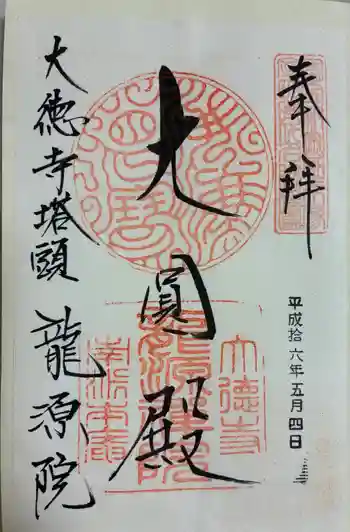 奉拝
平成拾六年五月四日
大圓殿
大徳寺塔頭 龍源院
大徳寺
龍源禅院